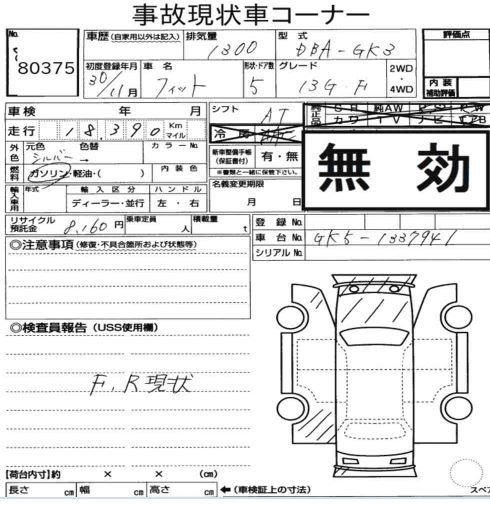 事故現状車コーナー
No.
80375
車歴 (自家用以外は記入) 排気量 1300 型式 DBA-GK3
評価点
初度登録年月 30/11月 車名 フィット 形状・ドア数 5 グレード 13G・F 2WD 4WD
内装補助評価
車検 年 月
シフト AT
走行 18,390 Km マイル
冷房
純正品
新車整備手帳(保証書付) 有・無
※書類と一緒に保管下さい。
無効
外色 元色 色替 カラーNo.
シルバー
燃料 ガソリン・軽油・( ) 内装色
名義変更期限
月 日
輸入車用 年式 輸入区分 ハンドル
ディーラー・並行 左・右
リサイクル預託金 8,160円 乗車定員 人 積載量 t
登録No.
車台No. GK5-1337941
シリアルNo.
◎注意事項 (修復・不具合箇所および状態等)
◎検査員報告 (USS使用欄)
F,R現状
【荷台内寸】約 × × (cm)
長さ cm 幅 cm 高さ cm ←(車検証上の寸法)
スペア